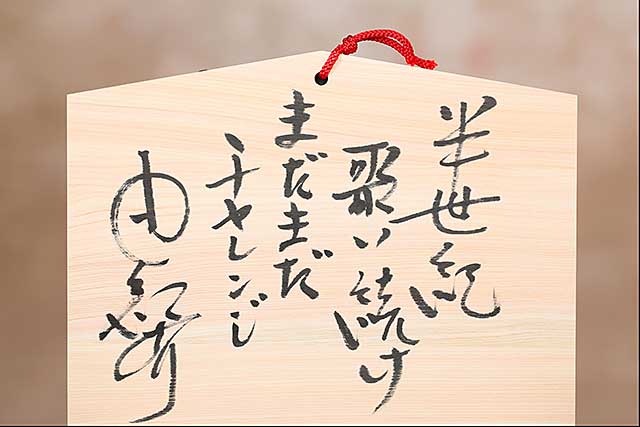 半世紀
歌い続け
まだまだ
チャレンジ
由紀さおり